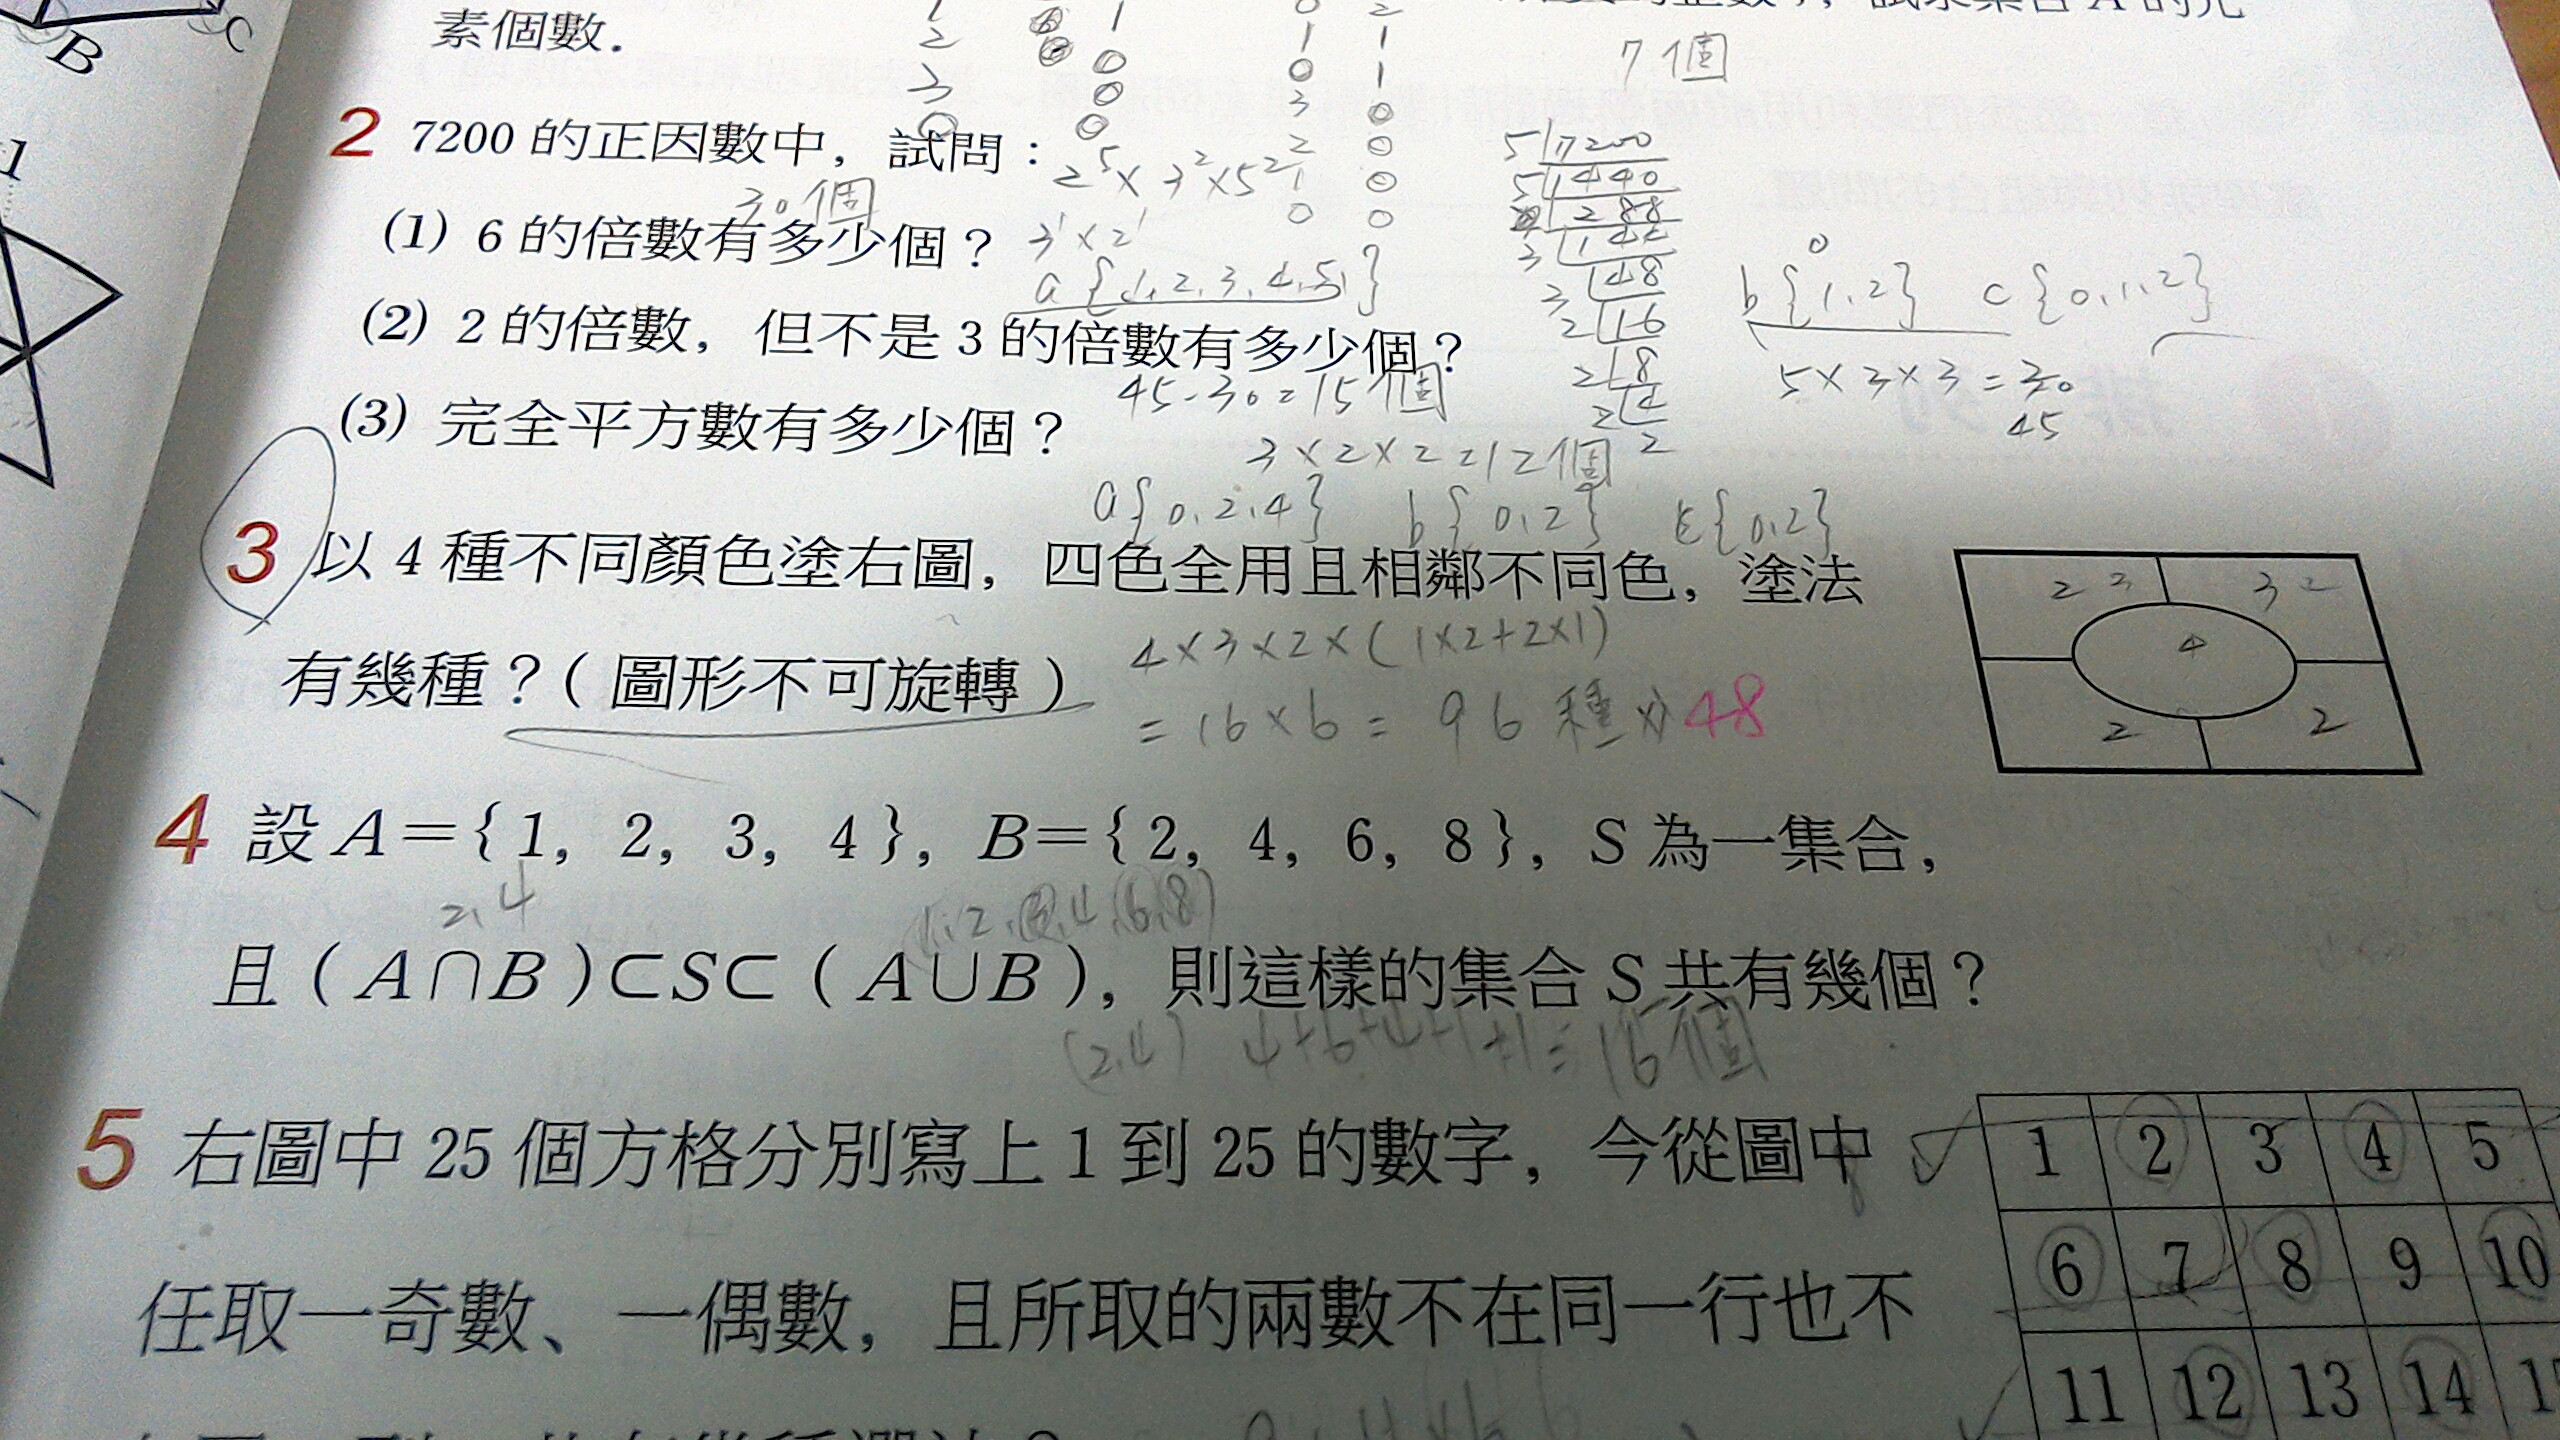 B
C
1
素個數.
7個
2 7200 的正因數中，試問：
2⁵×3²×5²
30個
(1) 6 的倍數有多少個？
3¹×2¹
a{1,2,3,4,5}
b{1,2} c{0,1,2}
0
5×3×3=30
45
(2) 2 的倍數，但不是 3 的倍數有多少個？
45-30=15個
(3) 完全平方數有多少個？
3×2×2=12個
a{0,2,4} b{0,2} {0,2}
5 7200
5 1440
288
3 144
3 48
2 16
2 8
2 4
2
3 以 4 種不同顏色塗右圖，四色全用且相鄰不同色，塗法
有幾種？(圖形不可旋轉)
4×3×2×(1×2+2×1)
=16×6=96種 48
2 3 3 2
4
2 2
4 設 A={1, 2, 3, 4}, B={2, 4, 6, 8}, S 為一集合，
2,4
1,2,3,4,6,8
且 (A∩B)⊂S⊂(A∪B)，則這樣的集合 S 共有幾個？
(2,4) 4+6+4+1+1=16個
5 右圖中 25 個方格分別寫上 1 到 25 的數字，今從圖中
任取一奇數、一偶數，且所取的兩數不在同一行也不
1 2 3 4 5
6 7 8 9 10
11 12 13 14